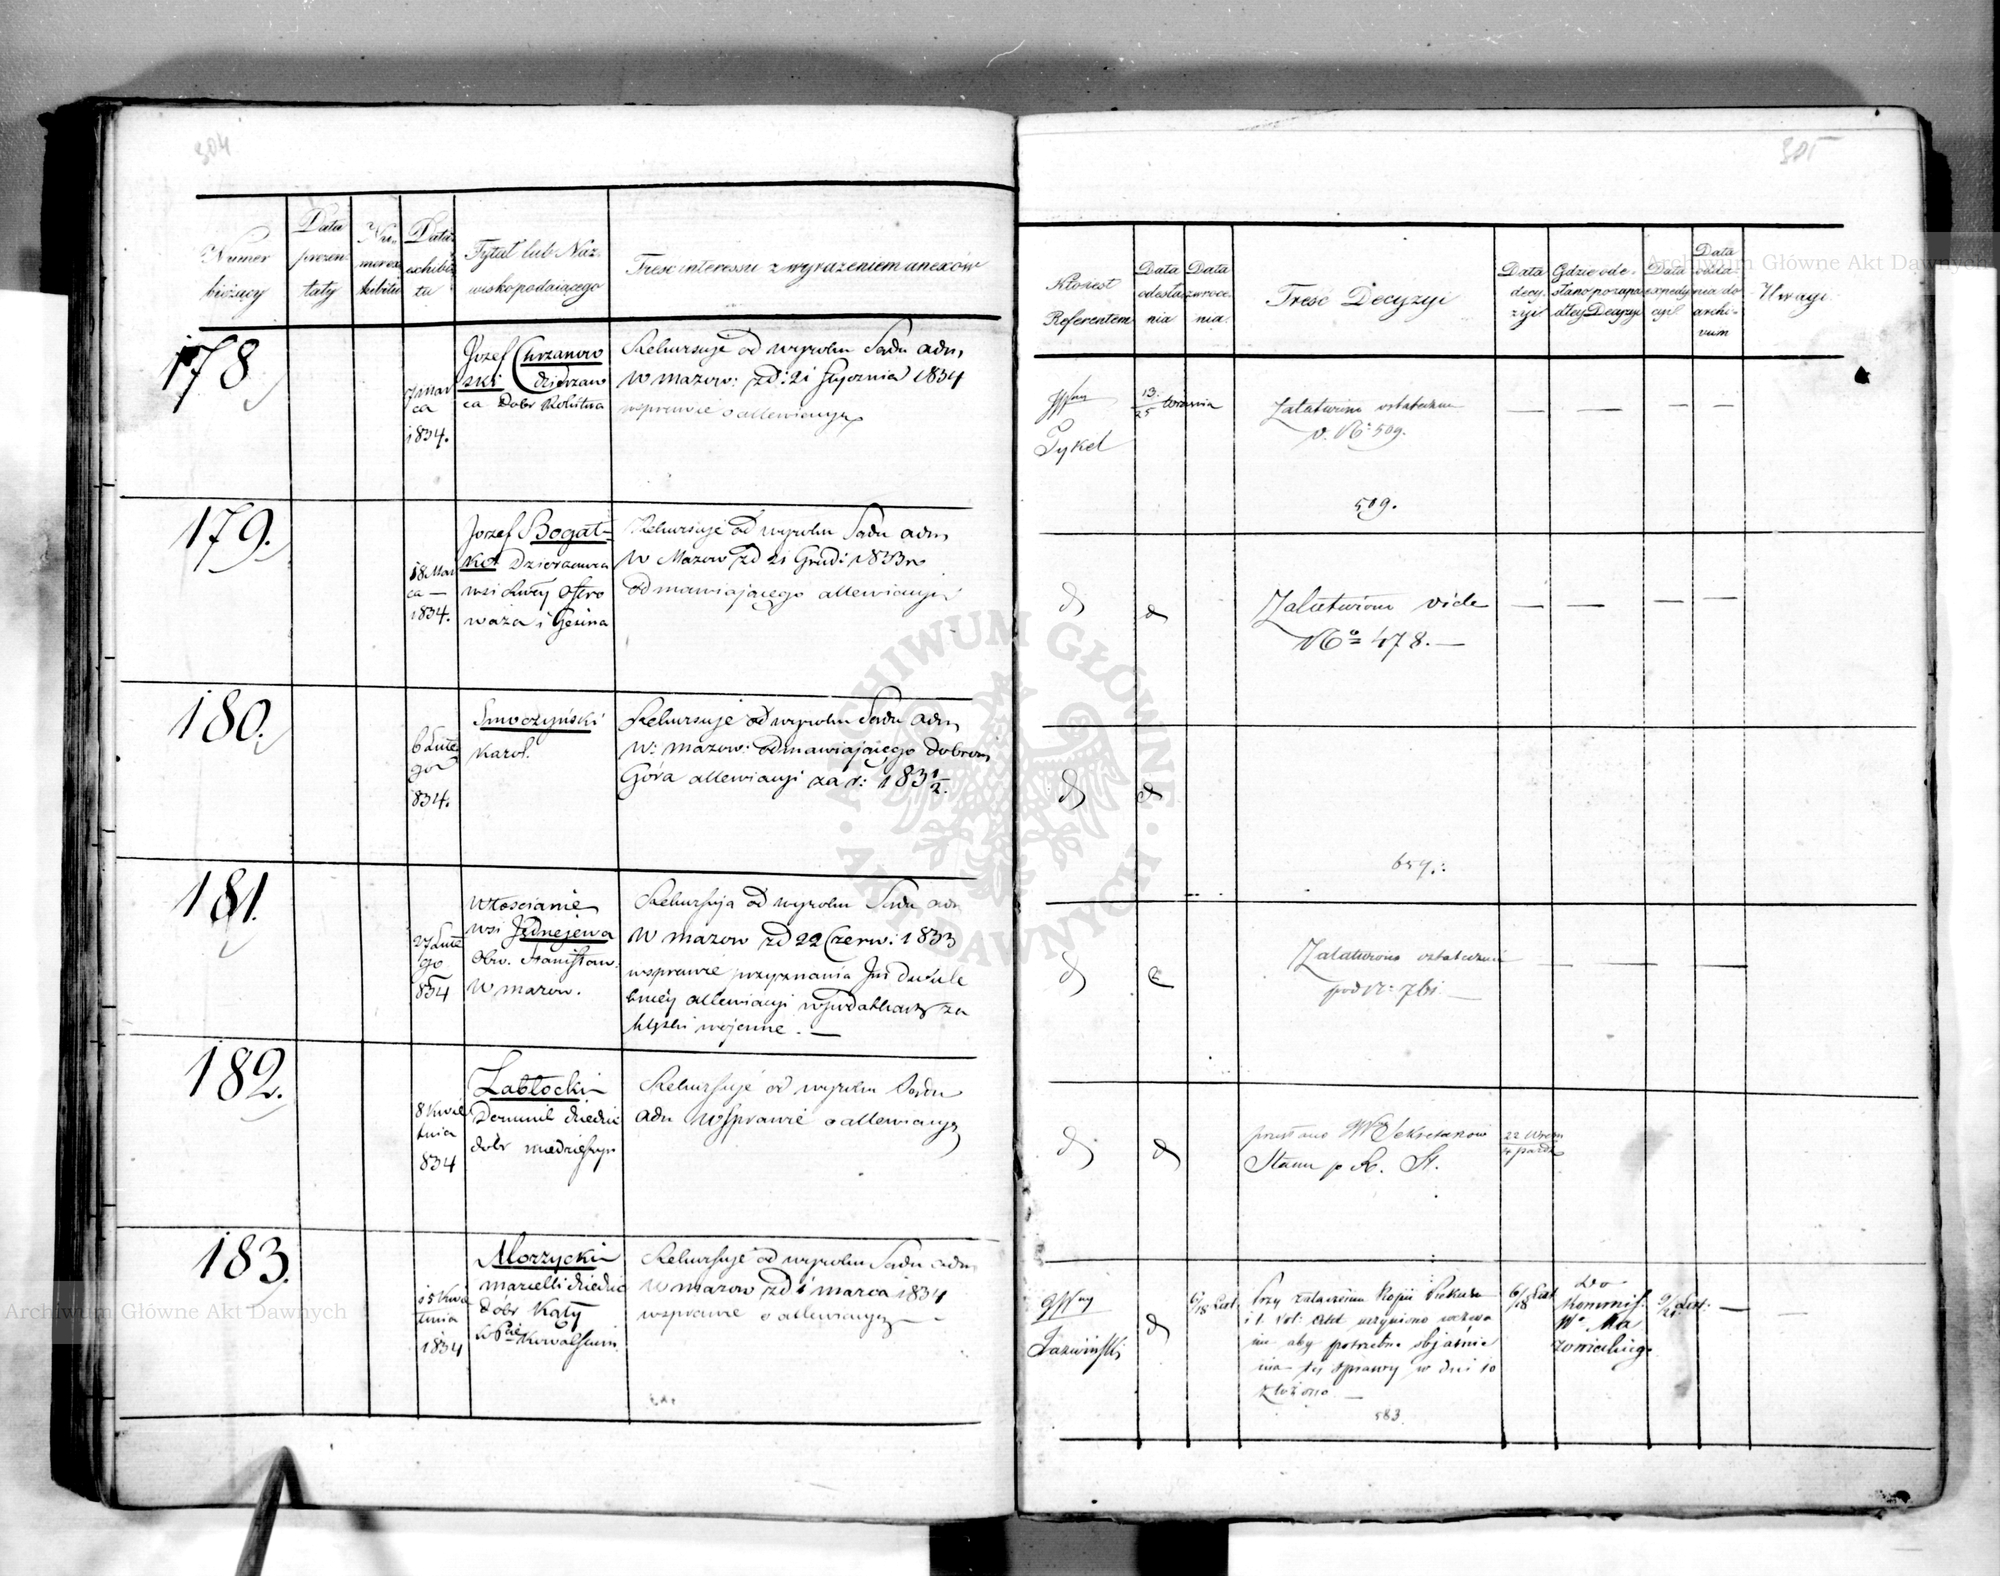 304
Numer bieżący
Data prezentaty
Numer exhibitu
Data exhibitu
Tytuł lub Nazwisko podaiącego
Treść interessu z wyrażeniem anexów
178
7 Marca 1834.
Jozef Chrzanowski
dzierzawca Dobr
Rekursuje od wyroku Sadu adm
W mazow: z d: 21 Stycznia 1834
wsprawie o allewiancyą
179.
18 Marca 1834.
Jozef Bogatko Dzierzawca
wsi
Rekursuje od wyroku Sadu adm
W Mazow z d 21 Grud: 1833 r
odmawiającego allewiancyi
180.
6 Lutego 834.
Smoczyński
Karol.
Rekursuje od wyroku Sadu adm
W: mazow: odmawiającego Dobrom
Góra allewiancyi za r: 183 1/2.
181.
27 Lutego 834
Włoscianie
wsi Jednejewa
Obw. Stanisław.
W mazow.
Rekursuja od wyroku Sadu adm
W mazow z d 22 Czerw: 1833
wsprawie przyznania Im
allewiancyi w podatkach za
klęski wojenne. —
182.
8 Kwietnia 834
Zabłocki
Dominik dziedzic
dóbr
Rekursuje od wyroku Sadu
adm Wsprawie o allewiancyą
183.
15 Kwietnia 1834
Morzycki
marcelli dziedzic
dóbr Kąty
Rekursuje od wyroku Sadu adm
W mazow z d 1 marca 1834
wsprawie o allewiancyą —
305
Którzest Referentem
Data odesłania
Data zwrócenia
Treść Decyzyi
Data decyzyi
Gdzie odesłano po zapadłey Decyzyi
Data expedycyi
Data oddania do archivum
Uwagi
Tykel
13/25 Wrzesnia
Załatwiono ostatecznie
v. No 509.
509.
Załatwiono vide
No 478. —
659.
Załatwiono ostatecznie
pod Nr: 761 —
przesłano JW Sekretarzowi
Stanu p R. St.
22 Wrzes
4 pazdz
6/18 List
Przy załączeniu Kopii Rekursu
uczyniono wezwa
nie aby potrzebne objaśnie
nia tej sprawy w dni 10
złożono —
583.
6/18 List
Do
Kommis:
Wa Ma
zowieckiego
9/21 List.
Archiwum Główne Akt Dawnych
Archiwum Główne Akt Dawnych
ARCHIWUM GŁÓWNE AKT DAWNYCH